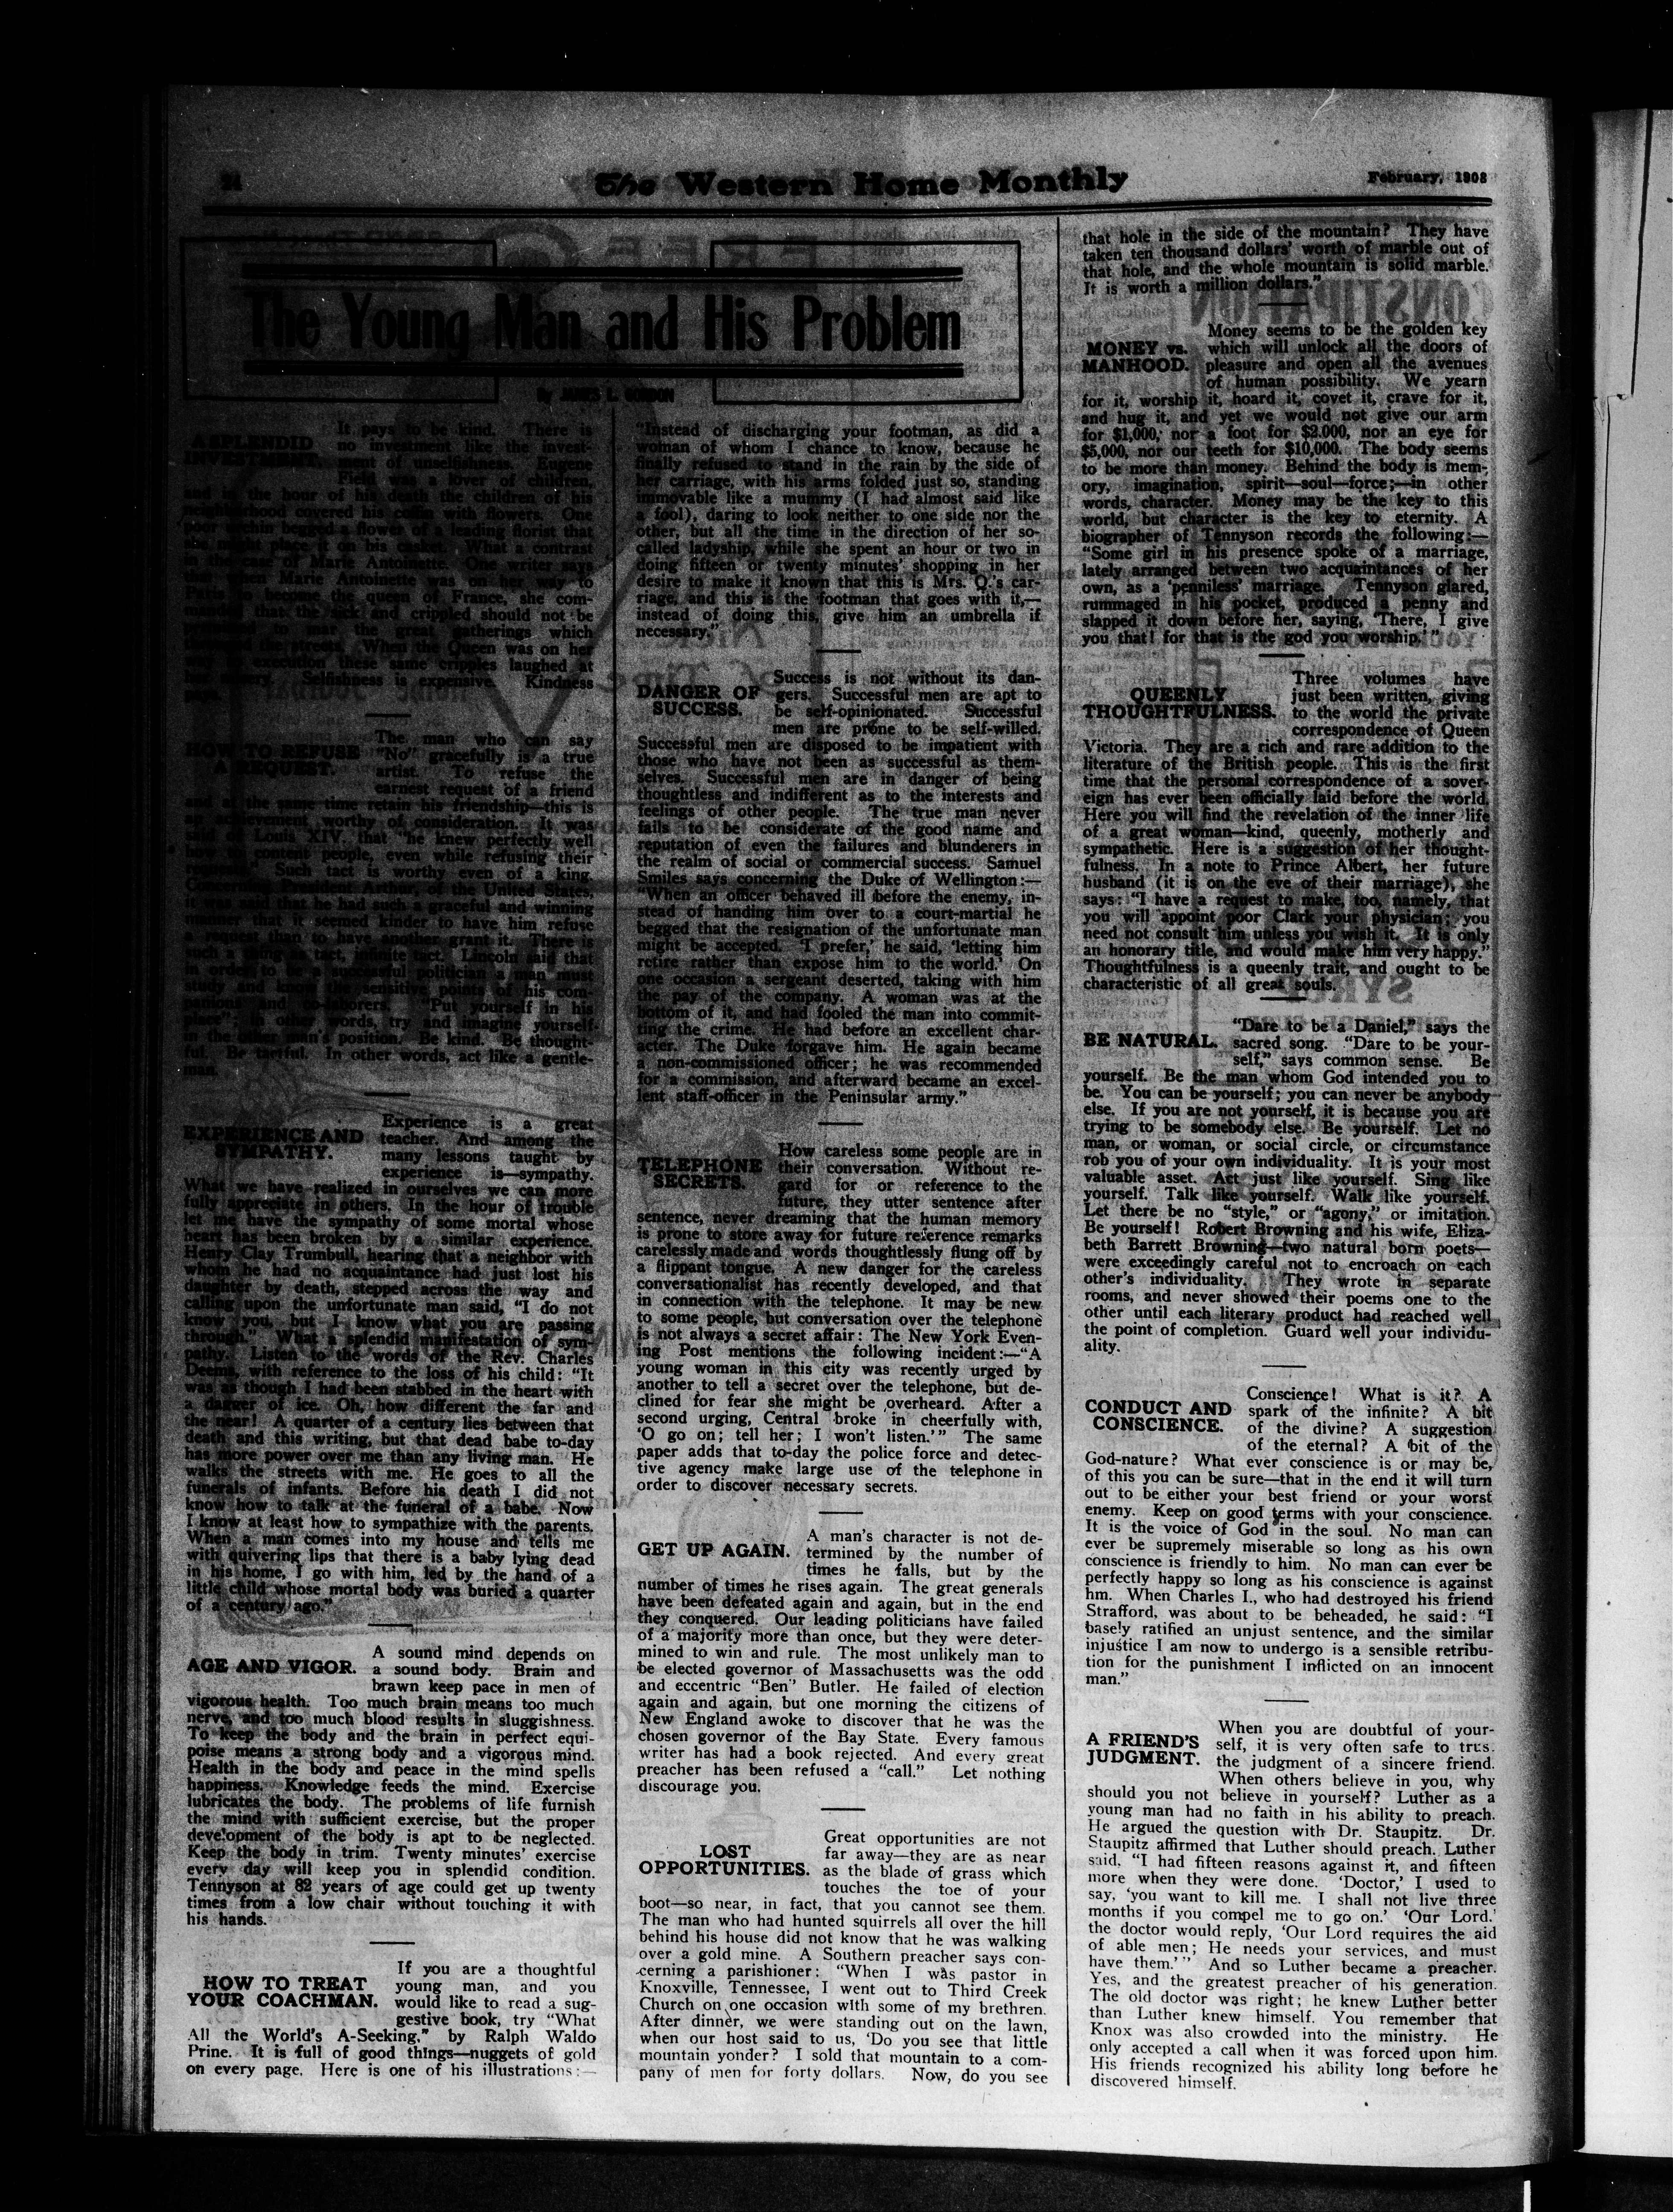 24
The Western Home Monthly
February, 1908
The Young Man and His Problem
By JAMES L. GORDON
A SPLENDID
INVESTMENT.
It pays to be kind. There is
no investment like the invest-
ment of unselfishness. Eugene
Field was a lover of children,
and in the hour of his death the children of his
neighborhood covered his coffin with flowers. One
poor urchin begged a flower of a leading florist that
he might place it on his casket. What a contrast
in the case of Marie Antoinette. One writer says
that when Marie Antoinette was on her way to
Paris to become the queen of France, she com-
manded that the sick and crippled should not be
to mar the great gatherings which
the streets. When the Queen was on her
way to execution these same cripples laughed at
her misery. Selfishness is expensive. Kindness
HOW TO REFUSE
A REQUEST.
The man who can say
"No" gracefully is a true
artist. To refuse the
earnest request of a friend
and at the same time retain his friendship—this is
an achievement worthy of consideration. It was
said of Louis XIV. that "he knew perfectly well
how to content people, even while refusing their
requests." Such tact is worthy even of a king.
Concerning President Arthur, of the United States,
it was said that he had such a graceful and winning
manner that it seemed kinder to have him refuse
a request than to have another grant it. There is
such a thing as tact, infinite tact. Lincoln said that
in order to be a successful politician a man must
study and know the sensitive points of his com-
panions and co-laborers. "Put yourself in his
place"; in other words, try and imagine yourself
in the other man's position. Be kind. Be thought-
ful. Be tactful. In other words, act like a gentle-
man.
EXPERIENCE AND
SYMPATHY.
Experience is a great
teacher. And among the
many lessons taught by
experience is—sympathy.
What we have realized in ourselves we can more
fully appreciate in others. In the hour of trouble
let me have the sympathy of some mortal whose
heart has been broken by a similar experience.
Henry Clay Trumbull, hearing that a neighbor with
whom he had no acquaintance had just lost his
daughter by death, stepped across the way and
calling upon the unfortunate man said, "I do not
know you, but I know what you are passing
through." What a splendid manifestation of sym-
pathy. Listen to the words of the Rev. Charles
Deems, with reference to the loss of his child: "It
was as though I had been stabbed in the heart with
a dagger of ice. Oh, how different the far and
the near! A quarter of a century lies between that
death and this writing, but that dead babe to-day
has more power over me than any living man. He
walks the streets with me. He goes to all the
funerals of infants. Before his death I did not
know how to talk at the funeral of a babe. Now
I know at least how to sympathize with the parents.
When a man comes into my house and tells me
with quivering lips that there is a baby lying dead
in his home, I go with him, led by the hand of a
little child whose mortal body was buried a quarter
of a century ago."
AGE AND VIGOR.
A sound mind depends on
a sound body. Brain and
brawn keep pace in men of
vigorous health. Too much brain means too much
nerve, and too much blood results in sluggishness.
To keep the body and the brain in perfect equi-
poise means a strong body and a vigorous mind.
Health in the body and peace in the mind spells
happiness. Knowledge feeds the mind. Exercise
lubricates the body. The problems of life furnish
the mind with sufficient exercise, but the proper
development of the body is apt to be neglected.
Keep the body in trim. Twenty minutes' exercise
every day will keep you in splendid condition.
Tennyson at 82 years of age could get up twenty
times from a low chair without touching it with
his hands.
HOW TO TREAT
YOUR COACHMAN.
If you are a thoughtful
young man, and you
would like to read a sug-
gestive book, try "What
All the World's A-Seeking," by Ralph Waldo
Prine. It is full of good things—nuggets of gold
on every page. Here is one of his illustrations:—
"Instead of discharging your footman, as did a
woman of whom I chance to know, because he
finally refused to stand in the rain by the side of
her carriage, with his arms folded just so, standing
immovable like a mummy (I had almost said like
a fool), daring to look neither to one side nor the
other, but all the time in the direction of her so-
called ladyship, while she spent an hour or two in
doing fifteen or twenty minutes' shopping in her
desire to make it known that this is Mrs. Q.'s car-
riage, and this is the footman that goes with it,—
instead of doing this, give him an umbrella if
necessary."
DANGER OF
SUCCESS.
Success is not without its dan-
gers. Successful men are apt to
be self-opinionated. Successful
men are prone to be self-willed.
Successful men are disposed to be impatient with
those who have not been as successful as them-
selves. Successful men are in danger of being
thoughtless and indifferent as to the interests and
feelings of other people. The true man never
fails to be considerate of the good name and
reputation of even the failures and blunderers in
the realm of social or commercial success. Samuel
Smiles says concerning the Duke of Wellington:—
"When an officer behaved ill before the enemy, in-
stead of handing him over to a court-martial he
begged that the resignation of the unfortunate man
might be accepted. 'I prefer,' he said, 'letting him
retire rather than expose him to the world.' On
one occasion a sergeant deserted, taking with him
the pay of the company. A woman was at the
bottom of it, and had fooled the man into commit-
ting the crime. He had before an excellent char-
acter. The Duke forgave him. He again became
a non-commissioned officer; he was recommended
for a commission, and afterward became an excel-
lent staff-officer in the Peninsular army."
TELEPHONE
SECRETS.
How careless some people are in
their conversation. Without re-
gard for or reference to the
future, they utter sentence after
sentence, never dreaming that the human memory
is prone to store away for future reference remarks
carelessly made and words thoughtlessly flung off by
a flippant tongue. A new danger for the careless
conversationalist has recently developed, and that
in connection with the telephone. It may be new
to some people, but conversation over the telephone
is not always a secret affair: The New York Even-
ing Post mentions the following incident:—"A
young woman in this city was recently urged by
another to tell a secret over the telephone, but de-
clined for fear she might be overheard. After a
second urging, Central broke in cheerfully with,
'O go on; tell her; I won't listen.'" The same
paper adds that to-day the police force and detec-
tive agency make large use of the telephone in
order to discover necessary secrets.
GET UP AGAIN.
A man's character is not de-
termined by the number of
times he falls, but by the
number of times he rises again. The great generals
have been defeated again and again, but in the end
they conquered. Our leading politicians have failed
of a majority more than once, but they were deter-
mined to win and rule. The most unlikely man to
be elected governor of Massachusetts was the odd
and eccentric "Ben" Butler. He failed of election
again and again, but one morning the citizens of
New England awoke to discover that he was the
chosen governor of the Bay State. Every famous
writer has had a book rejected. And every great
preacher has been refused a "call." Let nothing
discourage you.
LOST
OPPORTUNITIES.
Great opportunities are not
far away—they are as near
as the blade of grass which
touches the toe of your
boot—so near, in fact, that you cannot see them.
The man who had hunted squirrels all over the hill
behind his house did not know that he was walking
over a gold mine. A Southern preacher says con-
cerning a parishioner: "When I was pastor in
Knoxville, Tennessee, I went out to Third Creek
Church on one occasion with some of my brethren.
After dinner, we were standing out on the lawn,
when our host said to us, 'Do you see that little
mountain yonder? I sold that mountain to a com-
pany of men for forty dollars. Now, do you see
that hole in the side of the mountain? They have
taken ten thousand dollars' worth of marble out of
that hole, and the whole mountain is solid marble.
It is worth a million dollars."
MONEY vs.
MANHOOD.
Money seems to be the golden key
which will unlock all the doors of
pleasure and open all the avenues
of human possibility. We yearn
for it, worship it, hoard it, covet it, crave for it,
and hug it, and yet we would not give our arm
for $1,000, nor a foot for $2.000, nor an eye for
$5,000, nor our teeth for $10,000. The body seems
to be more than money. Behind the body is mem-
ory, imagination, spirit—soul—force;—in other
words, character. Money may be the key to this
world, but character is the key to eternity. A
biographer of Tennyson records the following:—
"Some girl in his presence spoke of a marriage,
lately arranged between two acquaintances of her
own, as a 'penniless' marriage. Tennyson glared,
rummaged in his pocket, produced a penny and
slapped it down before her, saying, 'There, I give
you that! for that is the god you worship.'"
QUEENLY
THOUGHTFULNESS.
Three volumes have
just been written, giving
to the world the private
correspondence of Queen
Victoria. They are a rich and rare addition to the
literature of the British people. This is the first
time that the personal correspondence of a sover-
eign has ever been officially laid before the world.
Here you will find the revelation of the inner life
of a great woman—kind, queenly, motherly and
sympathetic. Here is a suggestion of her thought-
fulness. In a note to Prince Albert, her future
husband (it is on the eve of their marriage), she
says: "I have a request to make, too, namely, that
you will appoint poor Clark your physician; you
need not consult him unless you wish it. It is only
an honorary title, and would make him very happy."
Thoughtfulness is a queenly trait, and ought to be
characteristic of all great souls.
BE NATURAL.
"Dare to be a Daniel," says the
sacred song. "Dare to be your-
self," says common sense. Be
yourself. Be the man whom God intended you to
be. You can be yourself; you can never be anybody
else. If you are not yourself, it is because you are
trying to be somebody else. Be yourself. Let no
man, or woman, or social circle, or circumstance
rob you of your own individuality. It is your most
valuable asset. Act just like yourself. Sing like
yourself. Talk like yourself. Walk like yourself.
Let there be no "style," or "agony," or imitation.
Be yourself! Robert Browning and his wife, Eliza-
beth Barrett Browning—two natural born poets—
were exceedingly careful not to encroach on each
other's individuality. They wrote in separate
rooms, and never showed their poems one to the
other until each literary product had reached well
the point of completion. Guard well your individu-
ality.
CONDUCT AND
CONSCIENCE.
Conscience! What is it? A
spark of the infinite? A bit
of the divine? A suggestion
of the eternal? A bit of the
God-nature? What ever conscience is or may be,
of this you can be sure—that in the end it will turn
out to be either your best friend or your worst
enemy. Keep on good terms with your conscience.
It is the voice of God in the soul. No man can
ever be supremely miserable so long as his own
conscience is friendly to him. No man can ever be
perfectly happy so long as his conscience is against
hm. When Charles I., who had destroyed his friend
Strafford, was about to be beheaded, he said: "I
basely ratified an unjust sentence, and the similar
injustice I am now to undergo is a sensible retribu-
tion for the punishment I inflicted on an innocent
man."
A FRIEND'S
JUDGMENT.
When you are doubtful of your-
self, it is very often safe to trus.
the judgment of a sincere friend.
When others believe in you, why
should you not believe in yourself? Luther as a
young man had no faith in his ability to preach.
He argued the question with Dr. Staupitz. Dr.
Staupitz affirmed that Luther should preach. Luther
said, "I had fifteen reasons against it, and fifteen
more when they were done. 'Doctor,' I used to
say, 'you want to kill me. I shall not live three
months if you compel me to go on.' 'Our Lord.'
the doctor would reply, 'Our Lord requires the aid
of able men; He needs your services, and must
have them.'" And so Luther became a preacher.
Yes, and the greatest preacher of his generation.
The old doctor was right; he knew Luther better
than Luther knew himself. You remember that
Knox was also crowded into the ministry. He
only accepted a call when it was forced upon him.
His friends recognized his ability long before he
discovered himself.